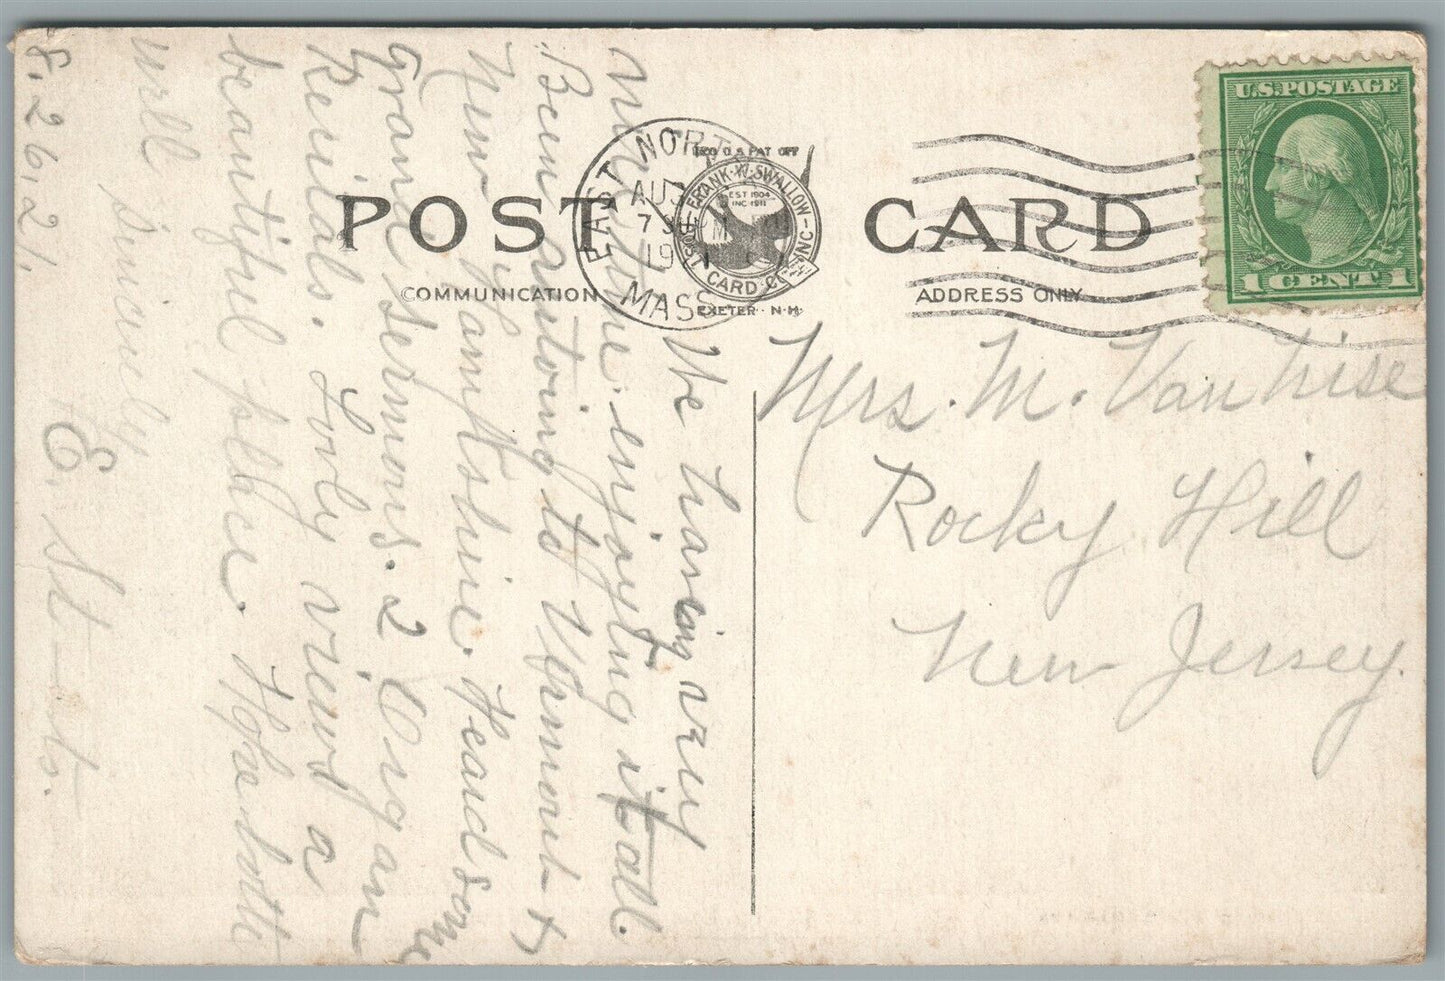 U.S. POSTAGE
1 CENT 1
REG U.S PAT OFF
FRANK·W·SWALLOW
EST 1904
INC 1911
POST CARD CO INC
EXETER · N·H·
EAST NORT
AUG
7
19
MASS.
POST CARD
COMMUNICATION
ADDRESS ONLY
Mrs. M. Van Nise
Rocky Hill
New Jersey.
We having very
nice time. enjoying it all.
Been autoing to Vermont &
New Hampshire. Heard some
Grand sermons. 2 Organ
Recitals. Lovely views a
beautiful place. Hope both
well
Sincerely
E. St—ts.
8.26.21.